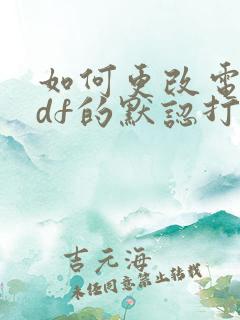 如何更改電
df的默認打
吉元海
未经同意禁止转载